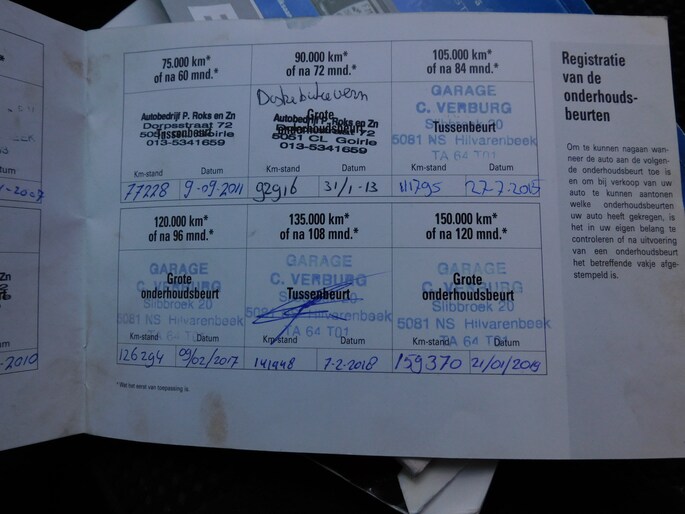 75.000 km*
of na 60 mnd.*
Autobedrijf P. Roks en Zn
Dorpsstraat 72
Tussenbeurt
Goirle
013-5341659
Km-stand Datum
77228 9-09-2011
90.000 km*
of na 72 mnd.*
Autobedrijf P. Roks en Zn
Grote
onderhoudsbeurt
5051 CL Goirle
013-5341659
Km-stand Datum
92916 31/1-13
105.000 km*
of na 84 mnd.*
GARAGE
C. VERBURG
Slibbroek 20
Tussenbeurt
5081 NS Hilvarenbeek
TA 64 T01
Km-stand Datum
111795 27-7-2015
120.000 km*
of na 96 mnd.*
GARAGE
C. VERBURG
Grote
onderhoudsbeurt
Slibbroek 20
5081 NS Hilvarenbeek
TA 64 T01
Km-stand Datum
126294 09/02/2017
135.000 km*
of na 108 mnd.*
GARAGE
C. VERBURG
Tussenbeurt
5081 NS Hilvarenbeek
TA 64 T01
Km-stand Datum
141948 7-2-2018
150.000 km*
of na 120 mnd.*
GARAGE
C. VERBURG
Grote
onderhoudsbeurt
Slibbroek 20
5081 NS Hilvarenbeek
TA 64 T01
Km-stand Datum
159370 21/01/2019
*Wat het eerst van toepassing is.
Registratie
van de
onderhouds-
beurten
Om te kunnen nagaan wan-
neer de auto aan de volgen-
de onderhoudsbeurt toe is
en om bij verkoop van uw
auto te kunnen aantonen
welke onderhoudsbeurten
uw auto heeft gekregen, is
het in uw eigen belang te
controleren of na uitvoering
van een onderhoudsbeurt
het betreffende vakje afge-
stempeld is.